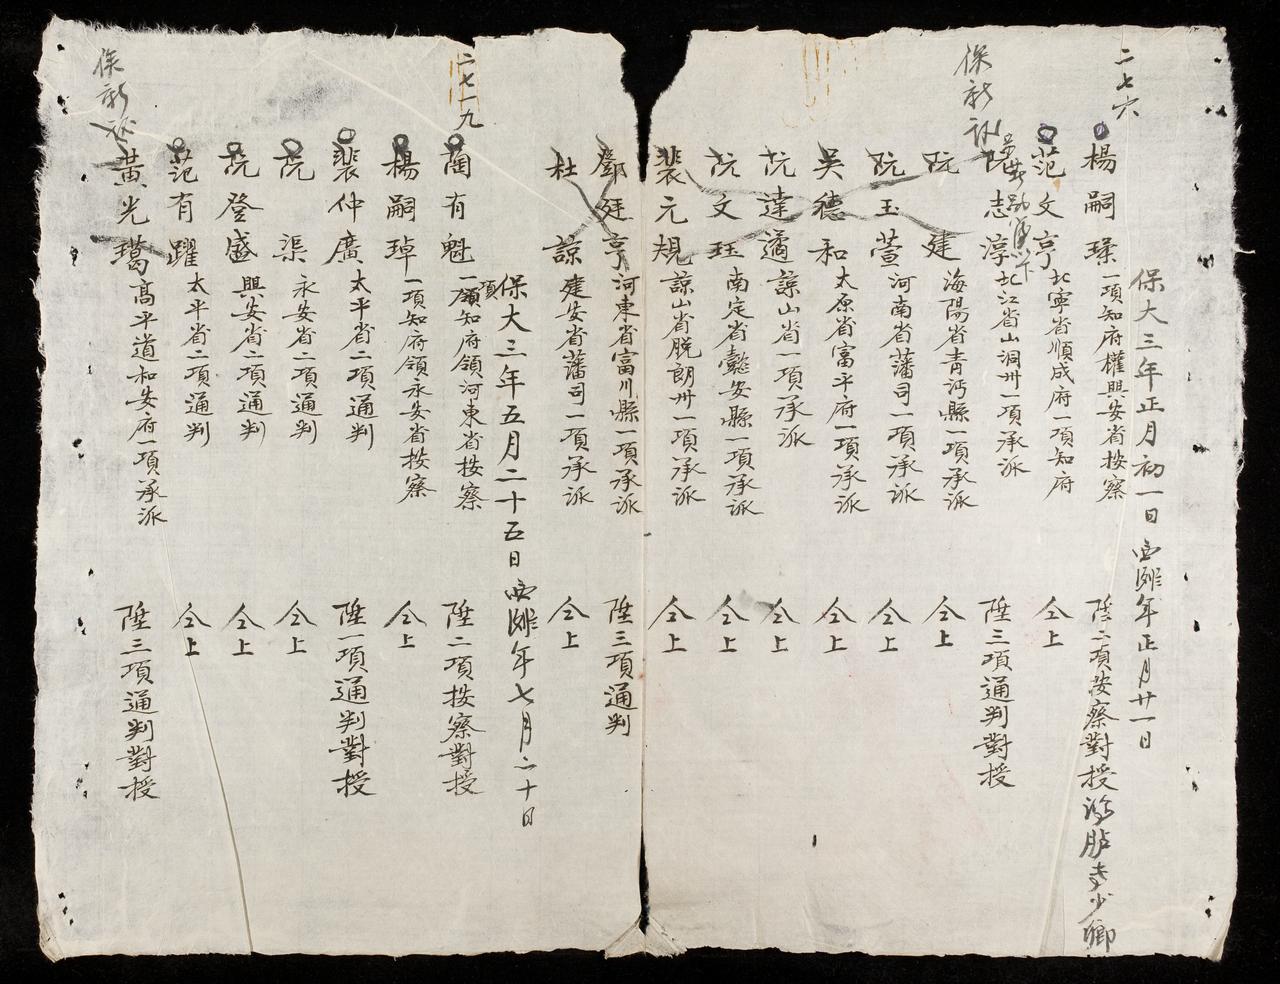 二七六
保大三年正月初一日 西 年正月廿一日
楊嗣瑈一項知府權興安省按察 陞二項按察對授 鴻臚寺少卿
范文亨北寧省順成府一項知府 仝上
保新
志淳北江省山洞州一項承派 陞三項通判對授
阮建海陽省青沔縣一項承派 仝上
阮玉萱河南省藩司一項承派 仝上
吳德和太原省富平府一項承派 仝上
阮達 諒山省一項承派 仝上
阮文珏南定省懿安縣一項承派 仝上
裴元規諒山省脱朗州一項承派 仝上
鄧廷亨河東省富川縣一項承派 陞三項通判
杜諒建安省藩司一項承派 仝上
二七一九
保大三年五月二十五日 西 年七月二十日
陶有魁一項知府領河東省按察 陞二項按察對授
楊嗣琸一項知府領永安省按察 仝上
裴仲廣太平省二項通判 陞一項通判對授
阮渠永安省二項通判 仝上
阮登盛興安省二項通判 仝上
范有躍太平省二項通判 仝上
保新
黃光 高平道和安府一項承派 陞三項通判對授